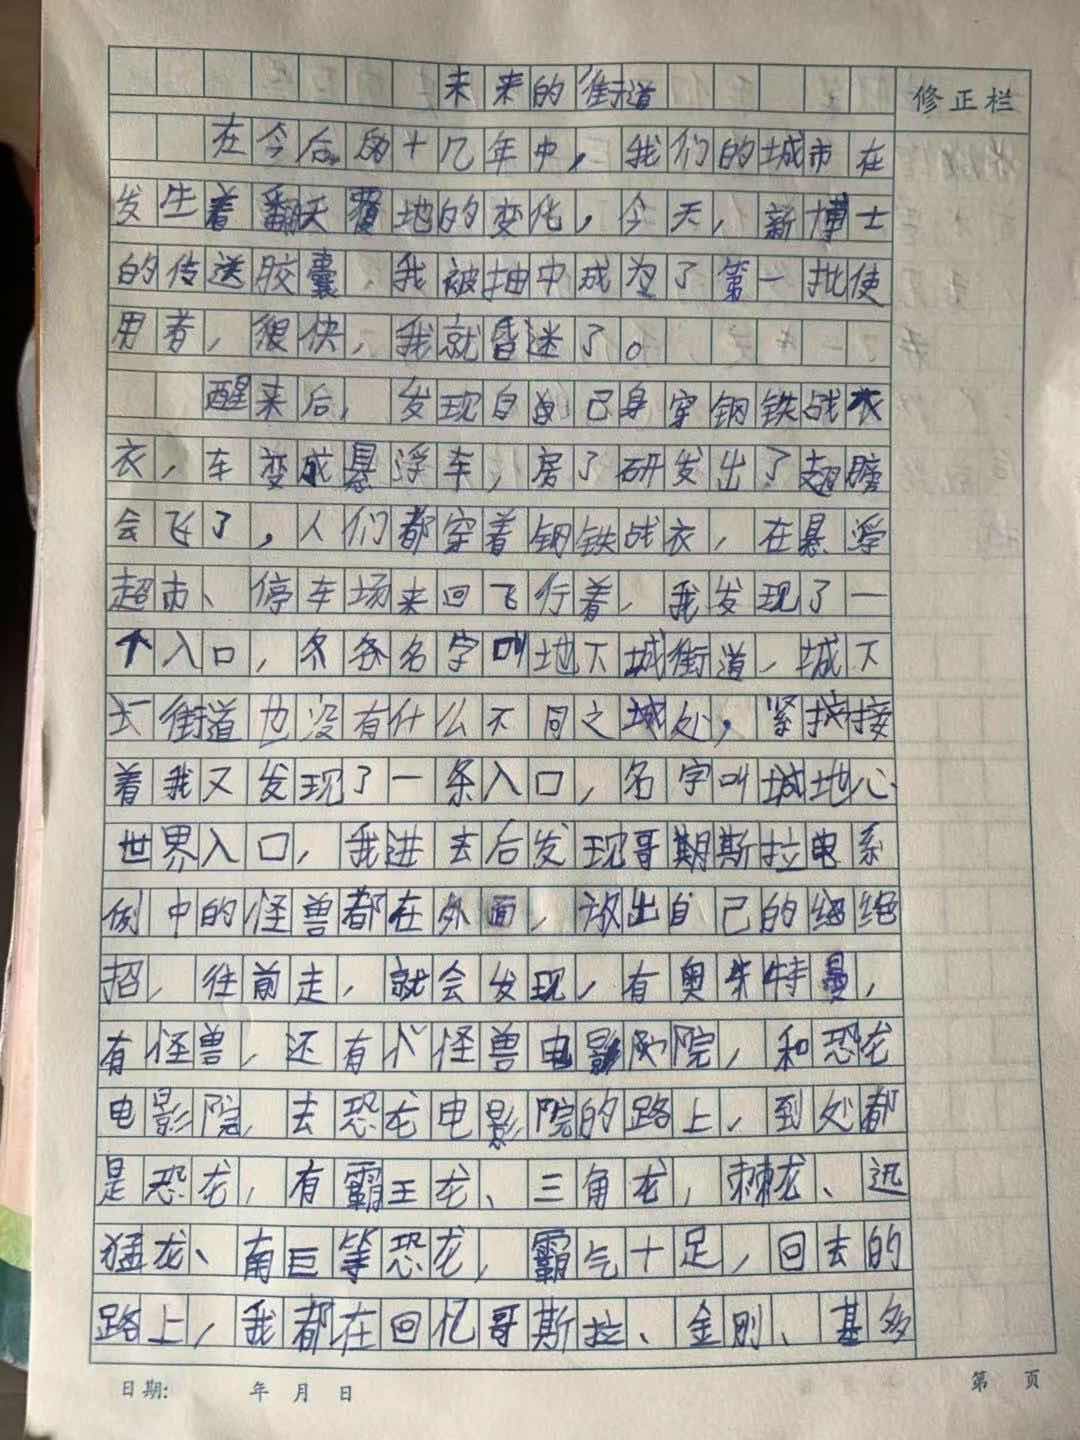 未来的街道
修正栏
在今后的十几年中，我们的城市在
发生着翻天覆地的变化，今天，新博士
的传送胶囊，我被抽中成为了第一批使
用者，很快，我就昏迷了。
醒来后，发现自己身穿钢铁战
衣，车变成悬浮车，房了研发出了翅膀
会飞了，人们都穿着钢铁战衣，在悬浮
超市、停车场来回飞行着，我发现了一
个入口，名字叫地下城街道，城下
街道也没有什么不同之处，紧接
着我又发现了一条入口，名字叫地心
世界入口，我进去后发现哥斯拉电系
例中的怪兽都在外面，放出自己的绝
招，往前走，就会发现，有奥特曼，
有怪兽，还有怪兽电影院，和恐龙
电影院，去恐龙电影院的路上，到处都
是恐龙，有霸王龙、三角龙，棘龙、迅
猛龙、南巨等恐龙，霸气十足，回去的
路上，我都在回忆哥斯拉、金刚、基多
日期： 年 月 日
第 页